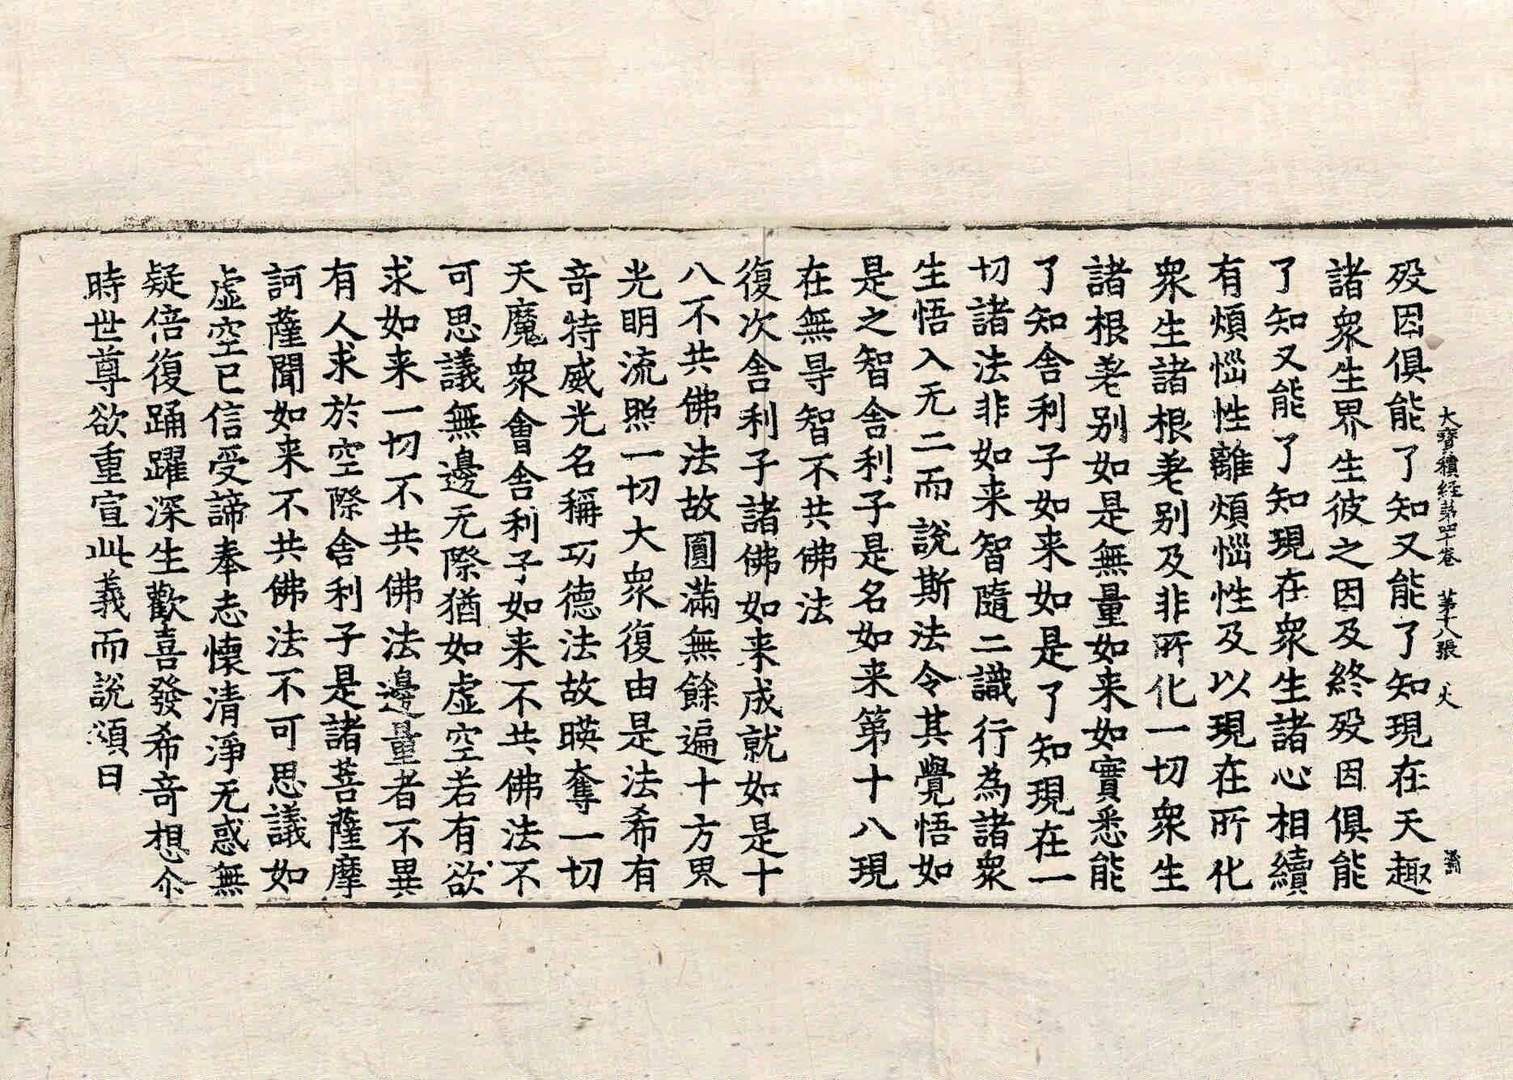 大寶積經第四十卷　第十八張　火
歿因俱能了知又能了知現在天趣
諸衆生界生彼之因及終歿因俱能
了知又能了知現在衆生諸心相續
有煩惱性離煩惱性及以現在所化
衆生諸根差别及非所化一切衆生
諸根差别如是無量如来如實悉能
了知舍利子如来如是了知現在一
切諸法非如来智隨二識行為諸衆
生悟入无二而說斯法令其覺悟如
是之智舍利子是名如来第十八現
在無㝵智不共佛法
復次舍利子諸佛如来成就如是十
八不共佛法故圓滿無餘遍十方界
光明流照一切大衆復由是法希有
竒特威光名稱㓛德法故暎奪一切
天魔衆會舍利子如来不共佛法不
可思議無邊无際猶如虛空若有欲
求如来一切不共佛法邊量者不異
有人求於空際舍利子是諸菩薩摩
訶薩聞如来不共佛法不可思議如
虛空已信受諦奉志懷清淨无惑無
疑倍復踊躍深生歡喜發希竒想尒
時世尊欲重宣此義而說頌曰